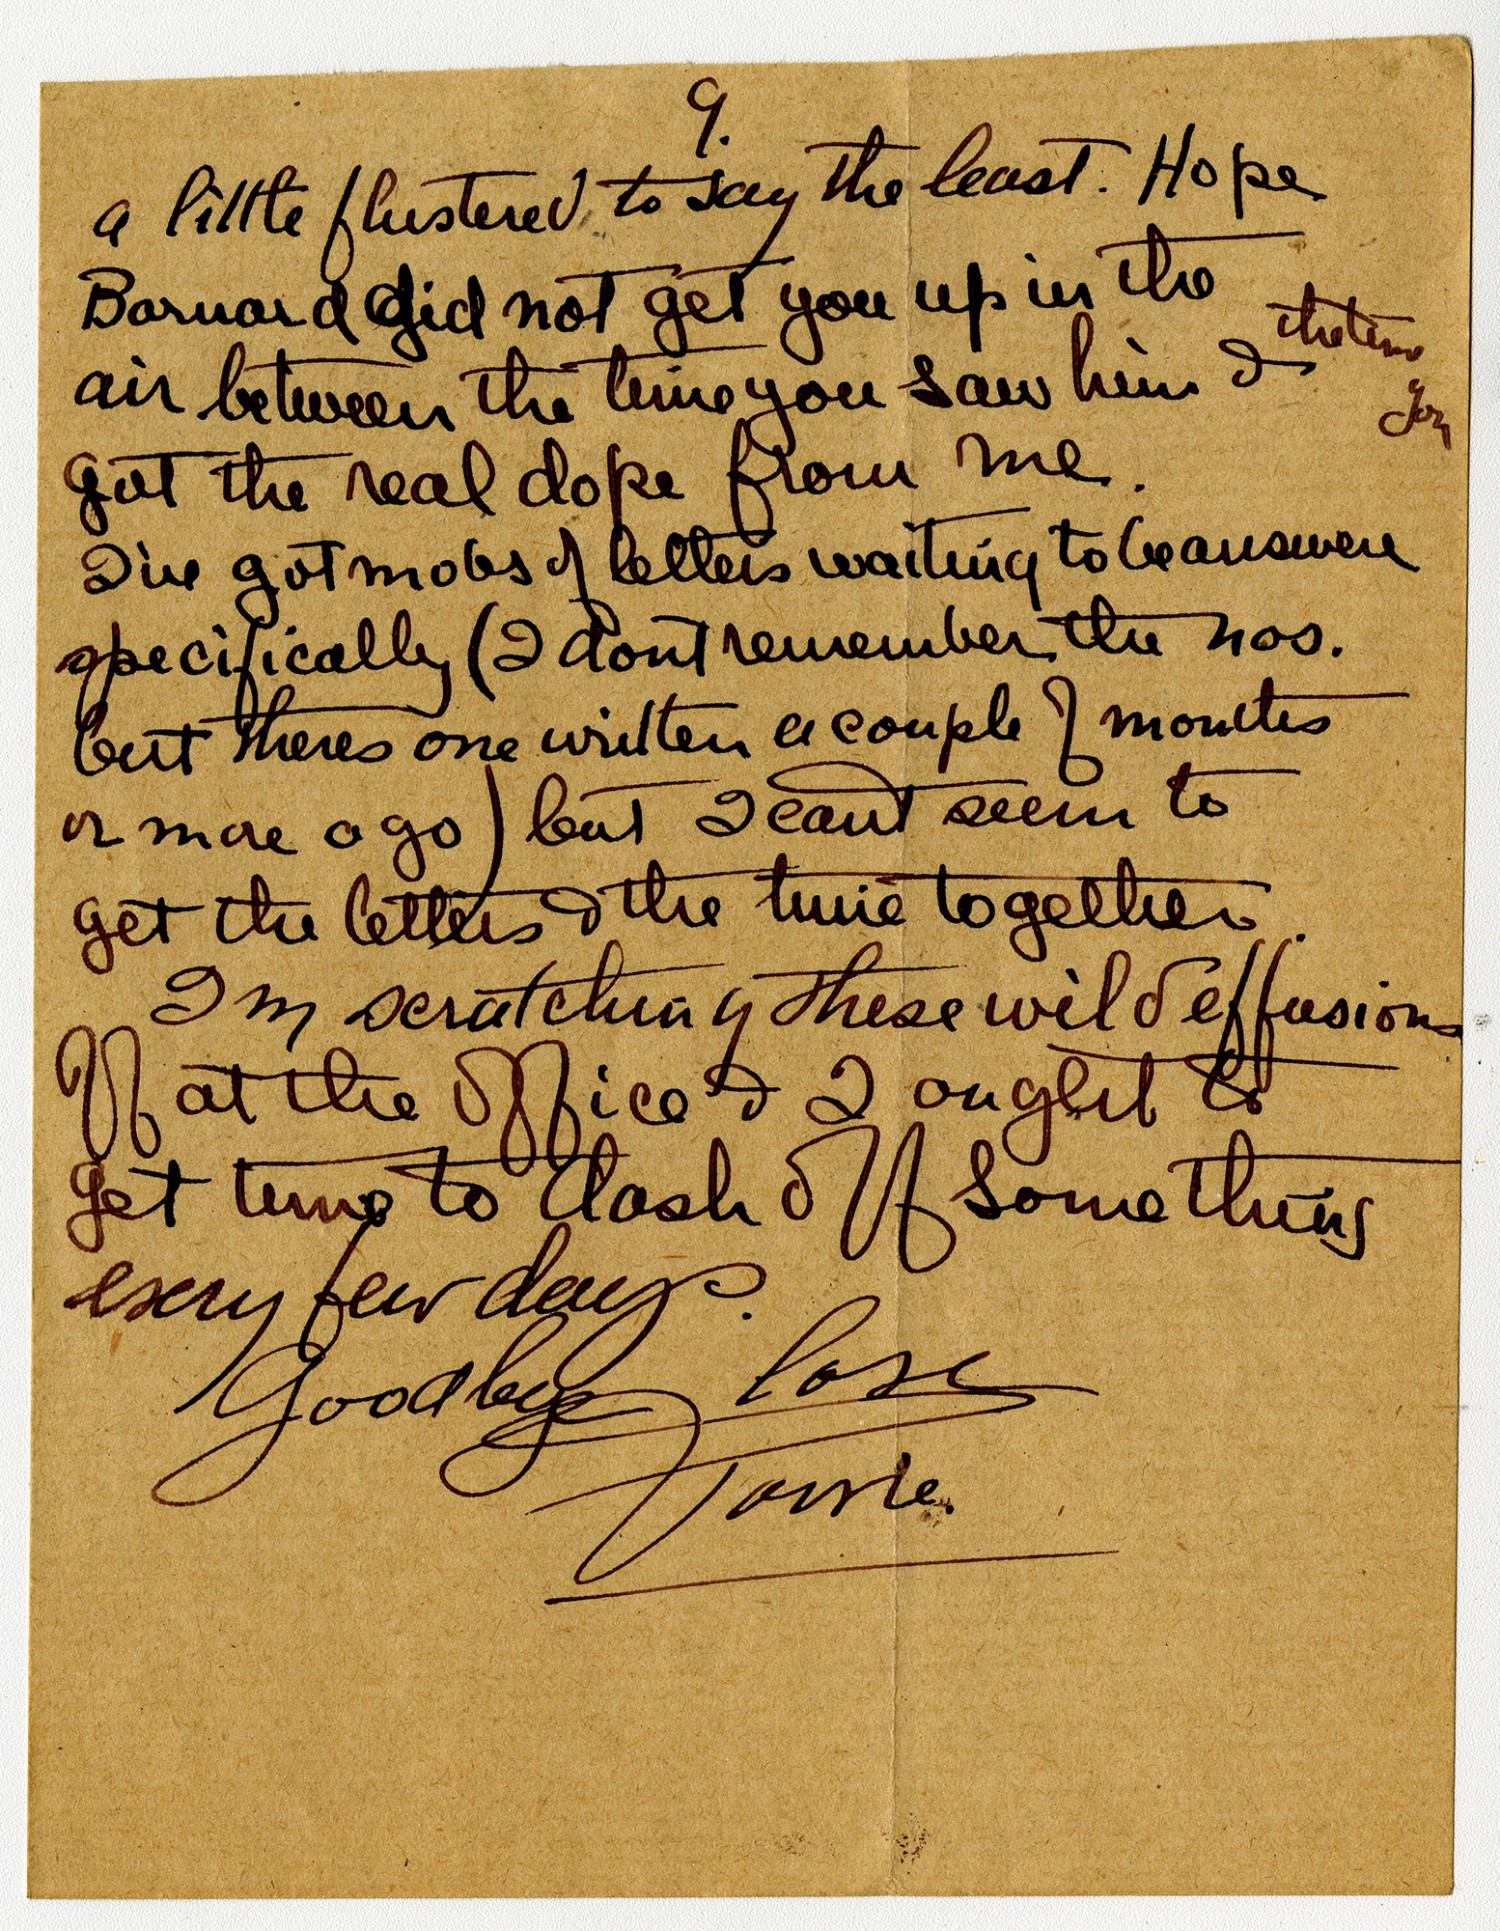 9.
a little flustered to say the least. Hope
Barnard did not get you up in the
air between the time you saw him & the time
you
got the real dope from me.
I've got mobs of letters waiting to be answere
specifically (I dont remember the nos.
but theres one written a couple of months
or more ago) but I cant seem to
get the letters & the time together.
I'm scratching these wild effusions
off at the office & I ought to
get time to dash off something
every few days.
Goodbye